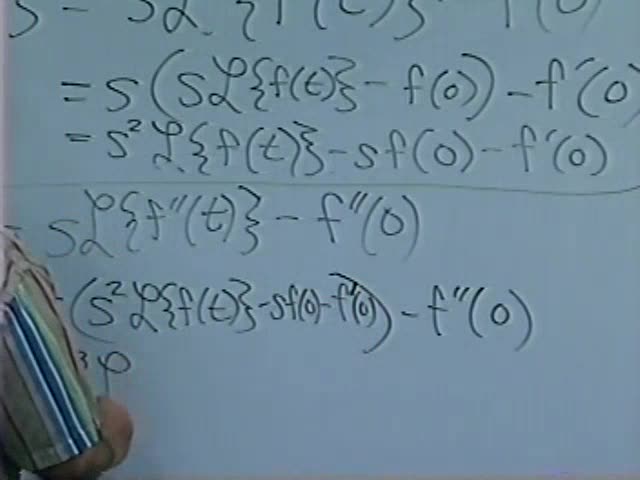 = s(sℒ{f(t)} - f(0)) - f'(0)
= s²ℒ{f(t)} - sf(0) - f'(0)
= sℒ{f''(t)} - f''(0)
(s²ℒ{f(t)} - sf(0) - f'(0)) - f''(0)
³ℒ